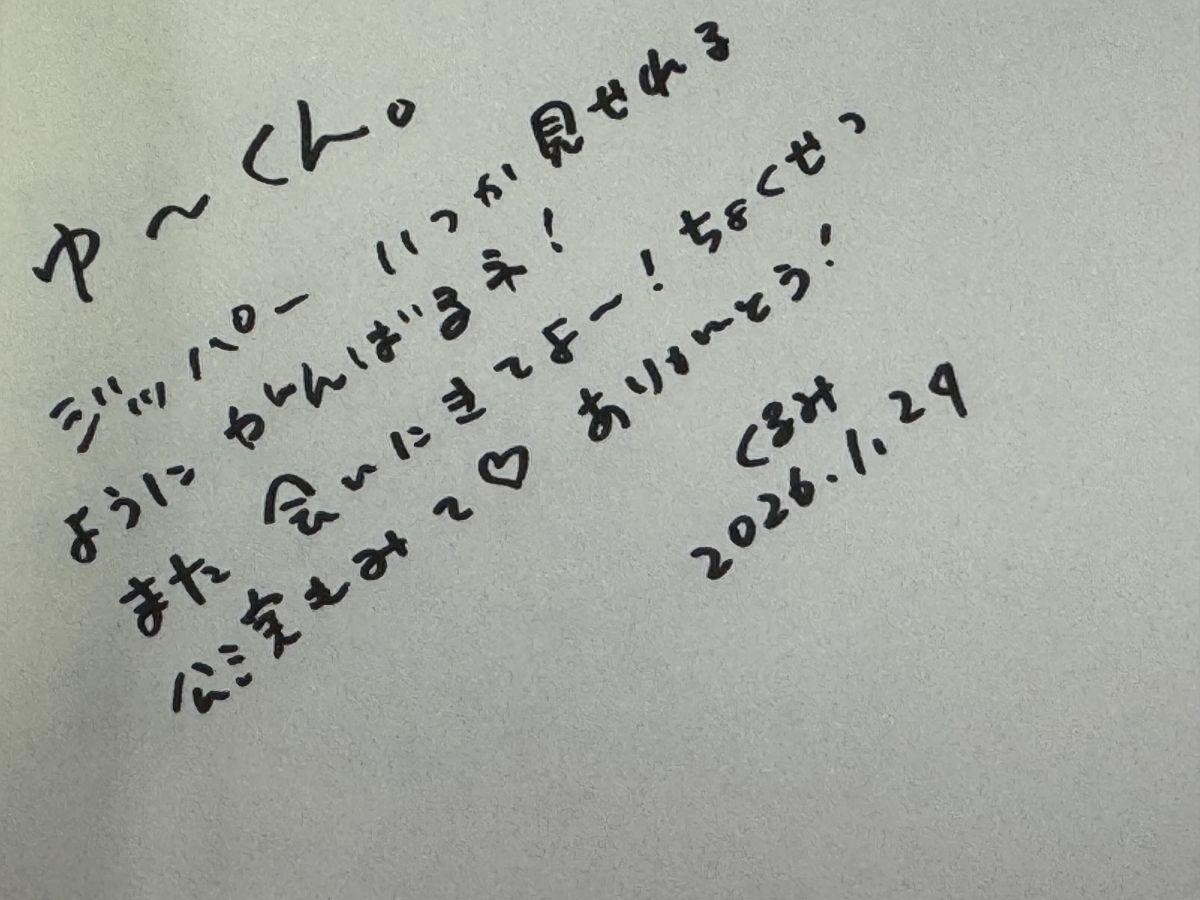 ゆ〜くん。
ジッパー いつか見せれる
ように がんばるネ!
また 会いにきてよ〜! ちょくせつ
伝えみて♡ ありがとう!
くるみ
2026.1.24